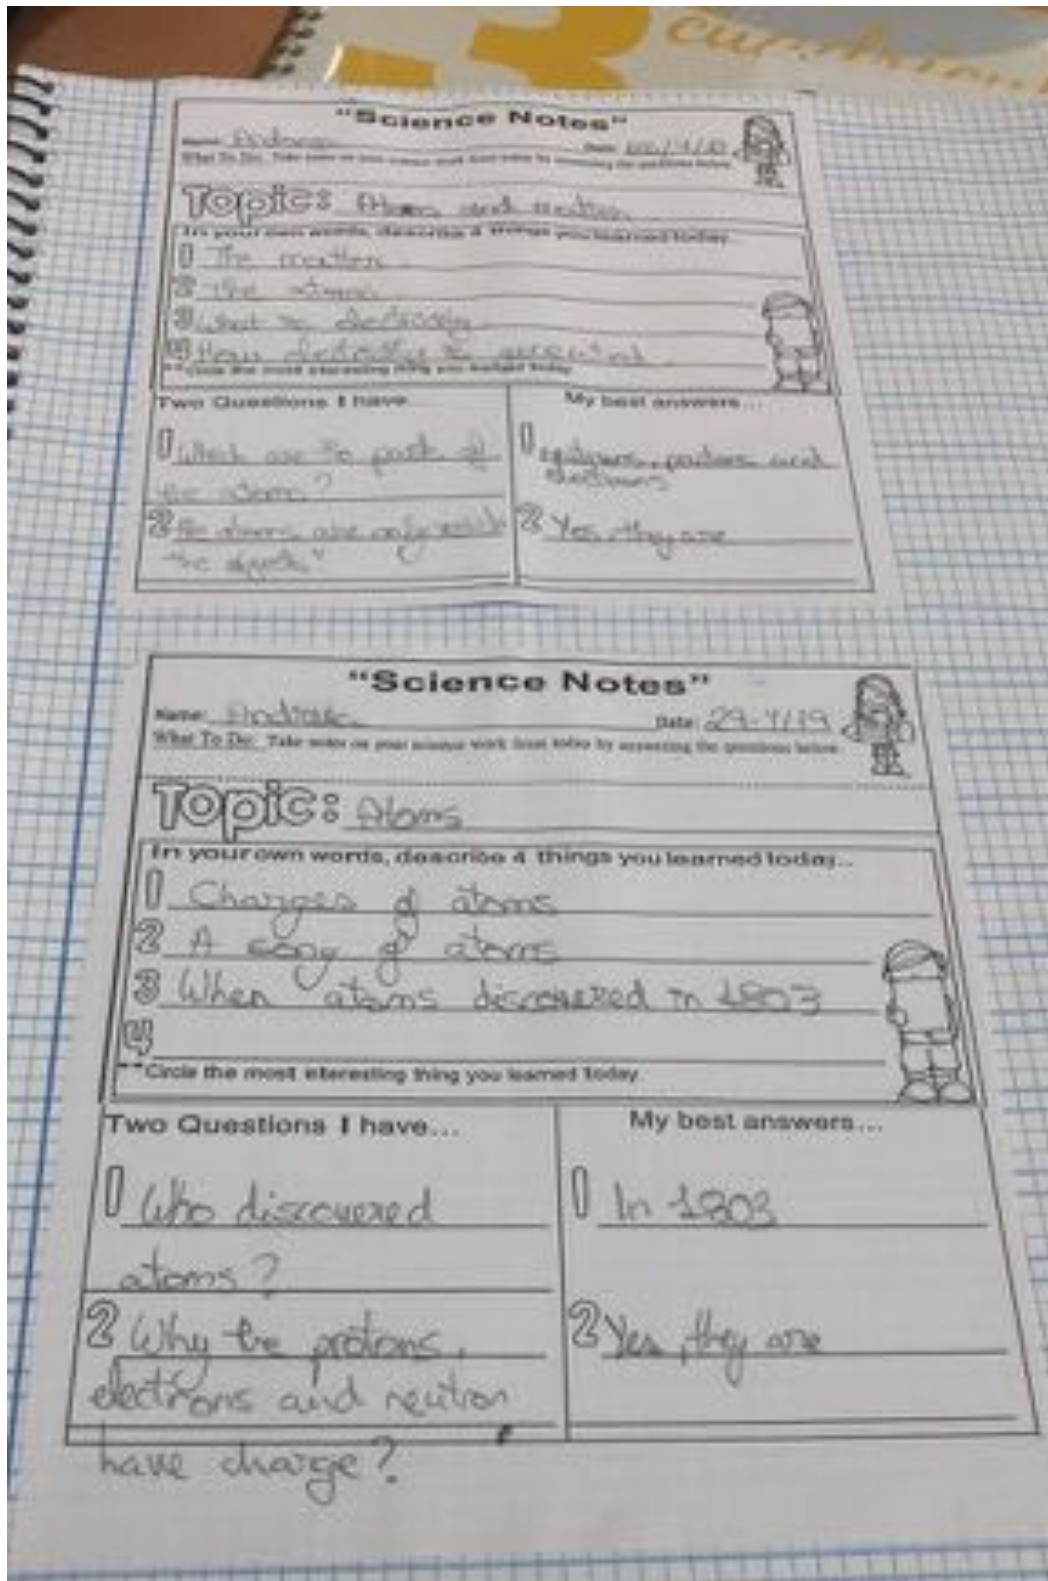 "Science Notes"
Name:
Date:
What To Do: Take notes on your science work from today by answering the questions below.
Topic: Atoms and matter
In your own words, describe 4 things you learned today...
1 The matter
2 The atoms
3 What is electricity
4 How electricity is
**Circle the most interesting thing you learned today.
Two Questions I have...
1 Which are the parts of
the atoms?
2 the atoms are only
the objects
My best answers...
1 protons and
electrons
2 Yes, they are
"Science Notes"
Name:
Date: 29-4/19
What To Do: Take notes on your science work from today by answering the questions below.
Topic: Atoms
In your own words, describe 4 things you learned today...
1 Charges of atoms
2 A song of atoms
3 When atoms discovered in 1803
4
**Circle the most interesting thing you learned today.
Two Questions I have...
1 Who discovered
atoms?
2 Why the protons,
electrons and neutron
have charge?
My best answers...
1 In 1803
2 Yes, they are